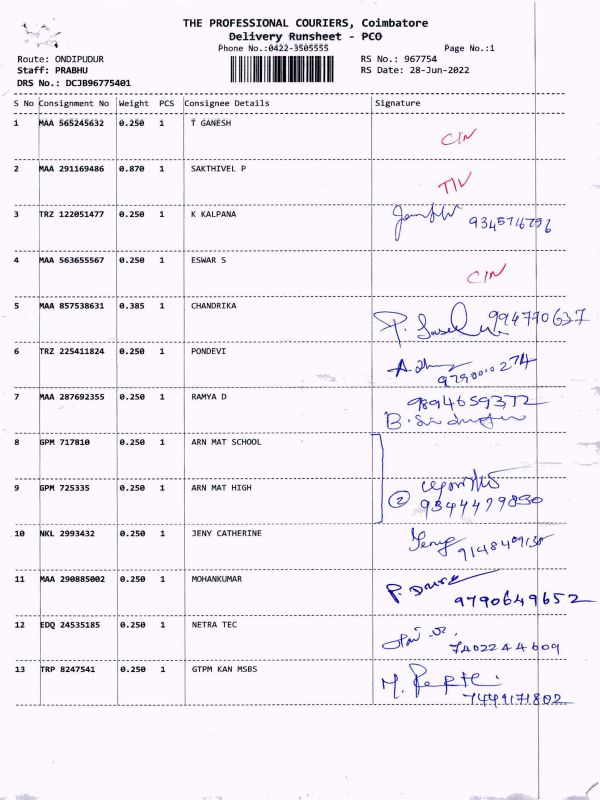 THE PROFESSIONAL COURIERS, Coimbatore
Delivery Runsheet - PCO
Phone No.:0422-3505555 Page No.:1
Route: ONDIPUDUR RS No.: 967754
Staff: PRABHU RS Date: 28-Jun-2022
DRS No.: DCJB96775401
S No Consignment No Weight PCS Consignee Details Signature
1 MAA 565245632 0.250 1 T GANESH CIN
2 MAA 291169486 0.870 1 SAKTHIVEL P
3 TRZ 122051477 0.250 1 K KALPANA
4 MAA 563655567 0.250 1 ESWAR S CIN
5 MAA 857538631 0.385 1 CHANDRIKA 994770637
6 TRZ 225411824 0.250 1 PONDEVI
7 MAA 287692355 0.250 1 RAMYA D 9894659372
8 GPM 717810 0.250 1 ARN MAT SCHOOL
9 GPM 725335 0.250 1 ARN MAT HIGH 2 9344479830
10 NKL 2993432 0.250 1 JENY CATHERINE Jeny
11 MAA 290885002 0.250 1 MOHANKUMAR 9790649652
12 EDQ 24535185 0.250 1 NETRA TEC 7402244609
13 TRP 8247541 0.250 1 GTPM KAN MSBS 7449171802